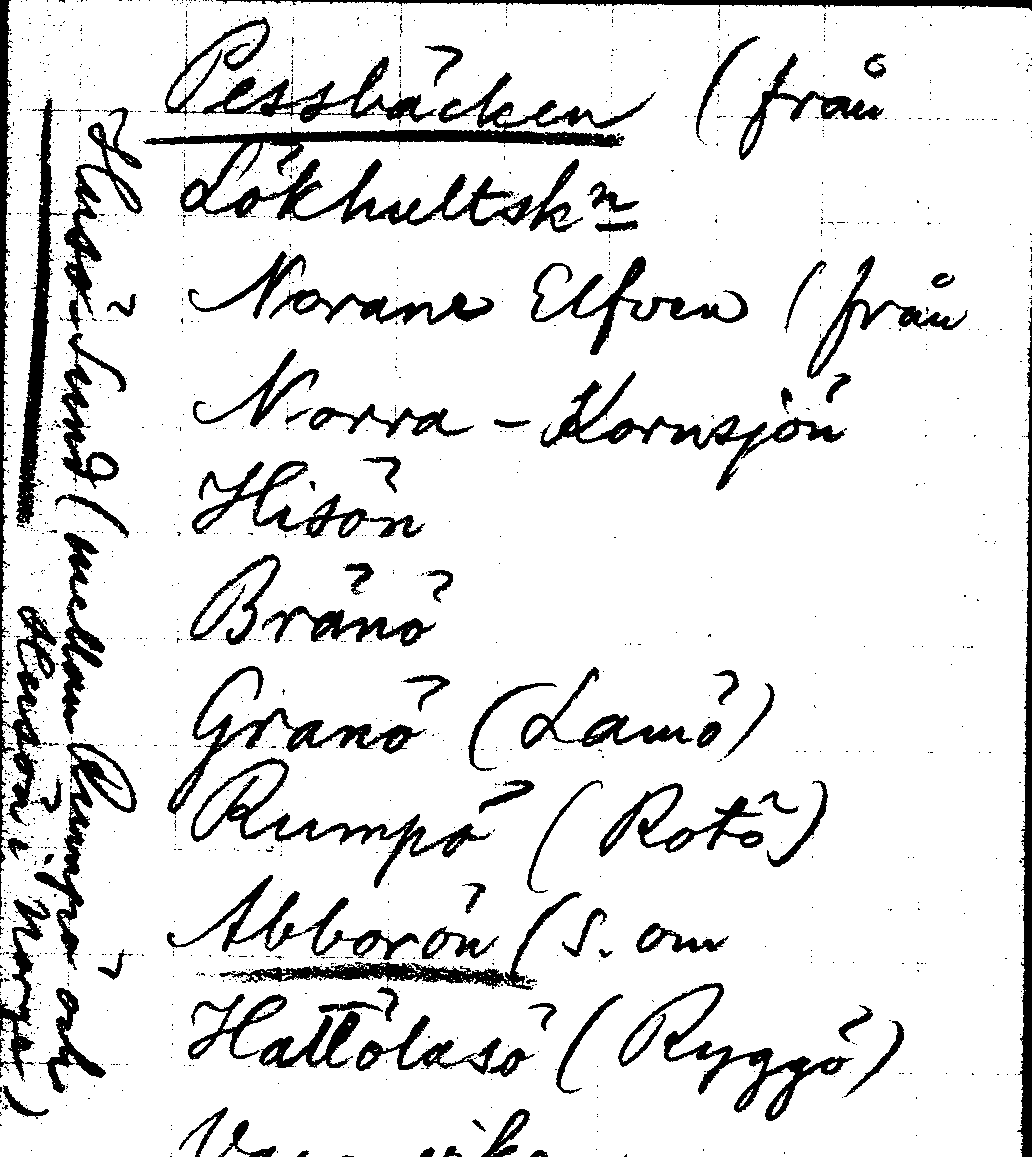 Pessbäcken (från
Lökhultskn
Norane Elfven (från
Norra - Kornsjön
Hisön
Bränö
Granö (Lamö)
Rumpö (Rotö)
Abborön (S. om
Hattölasö (Ryggö)
Husö-Sund (mellan Rumpö och
Husön i Norge)